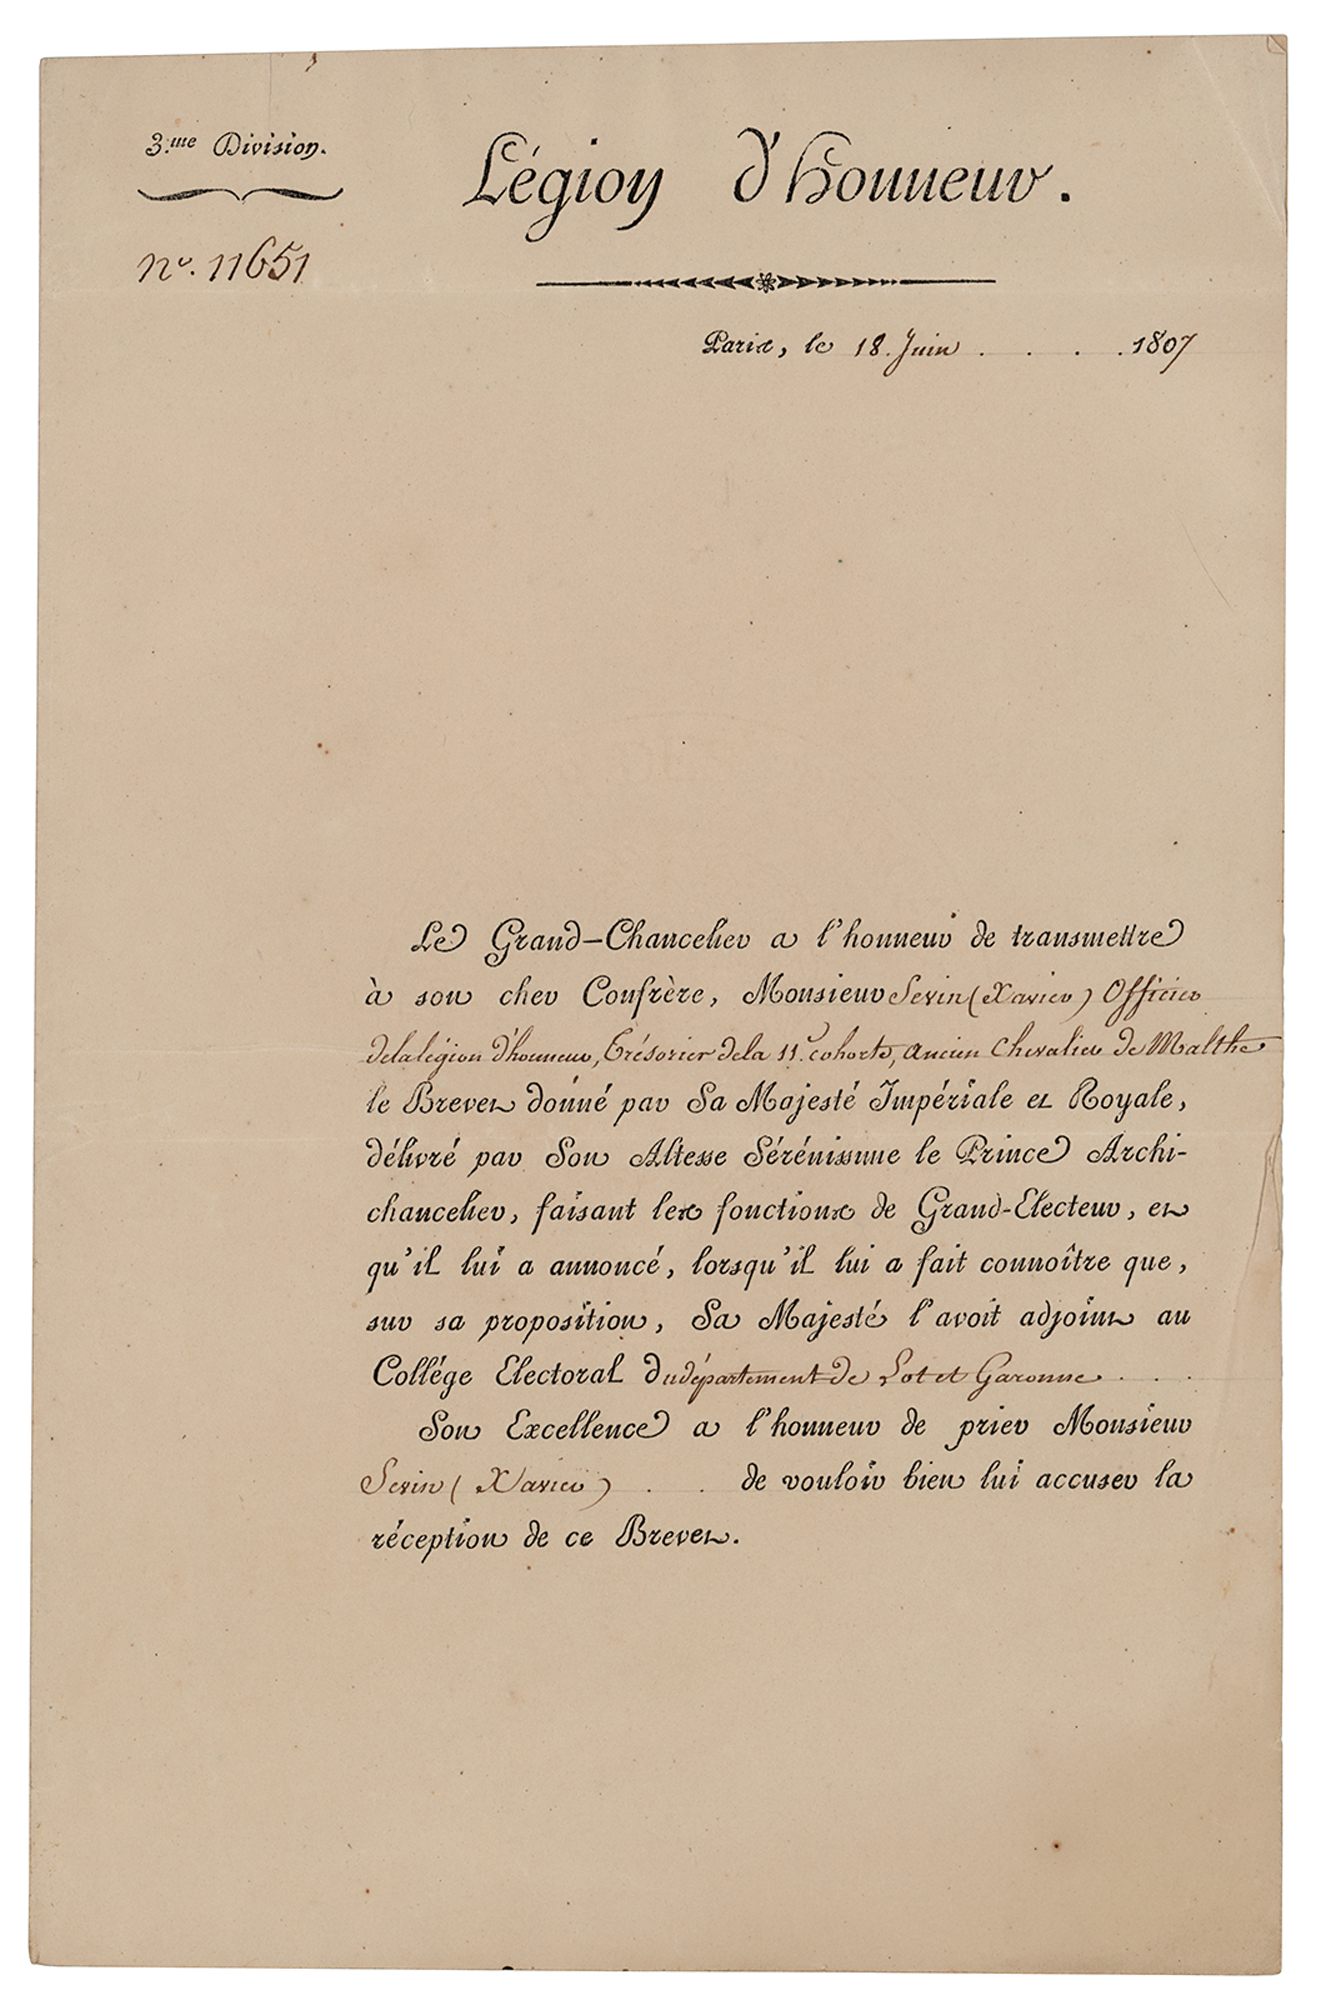 3.me Division.
Légion d'honneur.
no. 11651
Paris, le 18. Juin . . . . 1807
Le Grand-Chancelier a l'honneur de transmettre
à son cher Confrère, Monsieur Sevin (Xavier) Officier
de la légion d'honneur, Trésorier de la 11.e cohorte, ancien Chevalier de Malthe
le Brevet donné par Sa Majesté Impériale et Royale,
délivré par Son Altesse Sérénissime le Prince Archi-
chancelier, faisant les fonctions de Grand-Electeur, et
qu'il lui a annoncé, lorsqu'il lui a fait connoître que,
sur sa proposition, Sa Majesté l'avoit adjoint au
Collége Electoral du département de Lot et Garonne . . .
Son Excellence a l'honneur de prier Monsieur
Sevin (Xavier) . . de vouloir bien lui accuser la
réception de ce Brevet.